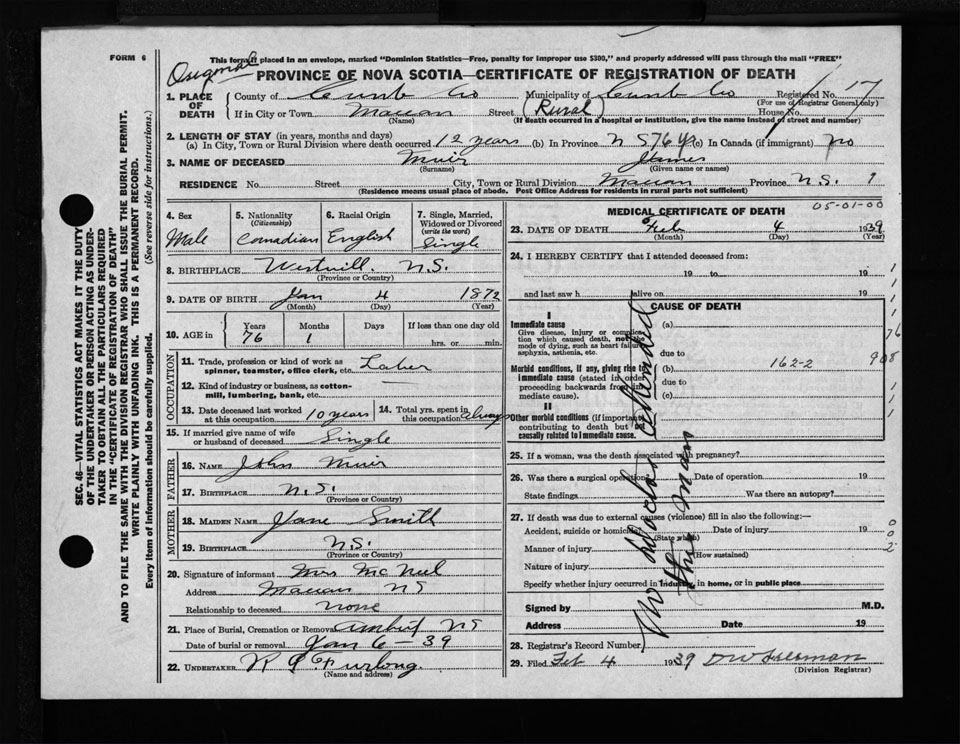 FORM 6
This form if placed in an envelope, marked "Dominion Statistics—Free, penalty for improper use $300," and properly addressed will pass through the mail "FREE"
Original
PROVINCE OF NOVA SCOTIA—CERTIFICATE OF REGISTRATION OF DEATH
1. PLACE OF DEATH
County of Cumb Co Municipality of Cumb Co Registered No. 17
(For use of Registrar General only)
If in City or Town Maccan Street (Rural) House No.
(Name) (If death occurred in a hospital or institution, give the name instead of street and number)
2. LENGTH OF STAY (in years, months and days)
(a) In City, Town or Rural Division where death occurred 12 years (b) In Province N S 76 yrs (c) In Canada (if immigrant) no
3. NAME OF DECEASED Muir James
(Surname) (Given name or names)
RESIDENCE No. Street City, Town or Rural Division Maccan Province N.S. 1
(Residence means usual place of abode. Post Office Address for residents in rural parts not sufficient)
4. Sex Male
5. Nationality (Citizenship) Canadian
6. Racial Origin English
7. Single, Married, Widowed or Divorced (write the word) Single
8. BIRTHPLACE Westvill. N.S.
(Province or Country)
9. DATE OF BIRTH Jan 4 1872
(Month) (Day) (Year)
10. AGE in Years Months Days If less than one day old
76 1 hrs. or min.
OCCUPATION
11. Trade, profession or kind of work as spinner, teamster, office clerk, etc. Laber
12. Kind of industry or business, as cotton-mill, lumbering, bank, etc.
13. Date deceased last worked at this occupation 10 years
14. Total yrs. spent in this occupation always
15. If married give name of wife or husband of deceased Single
FATHER
16. NAME John Muir
17. BIRTHPLACE N.S.
(Province or Country)
MOTHER
18. MAIDEN NAME Jane Smith
19. BIRTHPLACE N.S.
(Province or Country)
20. Signature of informant Mrs McNeil
Address Maccan NS
Relationship to deceased none
21. Place of Burial, Cremation or Removal NS
Date of burial or removal Jan 6 - 39
22. UNDERTAKER Furlong.
(Name and address)
MEDICAL CERTIFICATE OF DEATH 05-01-00
23. DATE OF DEATH Feb 4 1939
(Month) (Day) (Year)
24. I HEREBY CERTIFY that I attended deceased from:
19 to 19
and last saw h alive on 19
CAUSE OF DEATH
I
Immediate cause
Give disease, injury or complication which caused death, not the mode of dying, such as heart failure, asphyxia, asthenia, etc.
(a)
due to
Morbid conditions, if any, giving rise to immediate cause (stated in order proceeding backwards from immediate cause).
(b) 162-2 908
due to
(c)
II
Other morbid conditions (if important) contributing to death but not causally related to immediate cause.
No Doctor attended
this man
25. If a woman, was the death associated with pregnancy?
26. Was there a surgical operation? Date of operation 19
State findings Was there an autopsy?
27. If death was due to external causes (violence) fill in also the following:—
Accident, suicide or homicide? Date of injury 19
(State which)
Manner of injury
(How sustained)
Nature of injury
Specify whether injury occurred in industry, in home, or in public place
Signed by M.D.
Address Date 19
28. Registrar's Record Number
29. Filed Feb 4 1939
(Division Registrar)
SEC. 46—VITAL STATISTICS ACT MAKES IT THE DUTY
OF THE UNDERTAKER OR PERSON ACTING AS UNDER-
TAKER TO OBTAIN ALL THE PARTICULARS REQUIRED
IN THE "CERTIFICATE OF REGISTRATION OF DEATH"
AND TO FILE THE SAME WITH THE DIVISION REGISTRAR WHO SHALL ISSUE THE BURIAL PERMIT.
WRITE PLAINLY WITH UNFADING INK. THIS IS A PERMANENT RECORD.
Every item of information should be carefully supplied. (See reverse side for instructions.)